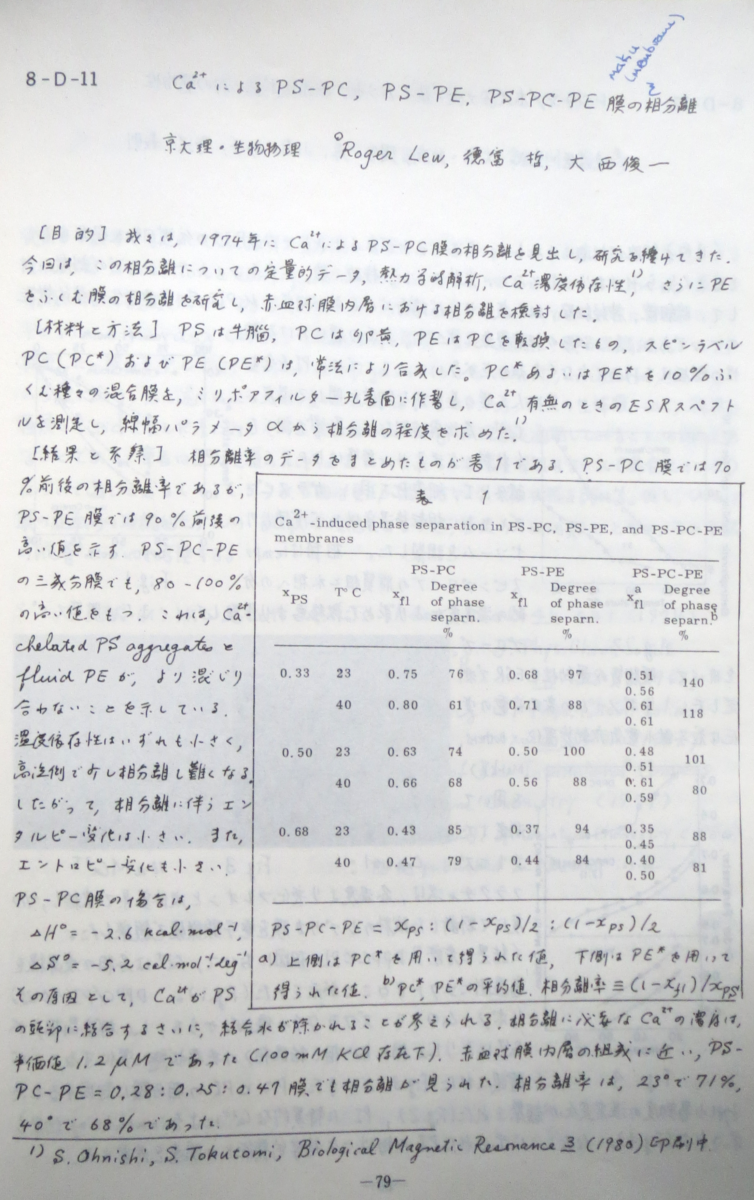 maku
(membrane)
8-D-11
Ca²⁺による PS-PC, PS-PE, PS-PC-PE 膜の相分離
京大理・生物物理 °Roger Lew, 徳富 哲, 大西俊一
[目的] 我々は, 1974年に Ca²⁺による PS-PC膜の相分離を見出し, 研究を続けてきた.
今回は, この相分離についての定量的データ, 熱力学的解析, Ca²⁺濃度依存性,¹⁾ さらに PE
をふくむ膜の相分離を研究し, 赤血球膜内層における相分離を検討した.
[材料と方法] PSは牛脳, PCは卵黄, PEはPCを転換したもの, スピンラベル
PC(PC*)および PE(PE*)は, 常法により合成した。PC*あるいはPE*を10%ふ
くむ種々の混合膜を, ミリポアフィルター孔表面に作製し, Ca²⁺有無のときのESRスペクト
ルを測定し, 線幅パラメータ αから相分離の程度を求めた.¹⁾
[結果と考察] 相分離率のデータをまとめたものが表1である. PS-PC膜では70
%前後の相分離率であるが,
PS-PE膜では90%前後の
高い値を示す. PS-PC-PE
の三成分膜でも, 80-100%
の高い値をもつ. これは, Ca²⁺-
chelated PS aggregates と
fluid PE が, より混じり
合わないことを示している.
温度依存性はいずれも小さく,
高温側で少し相分離し難くなる.
したがって, 相分離に伴うエン
タルピー変化は小さい. また,
エントロピー変化も小さい.
PS-PC膜の場合は,
ΔH°= -2.6 kcal·mol⁻¹,
ΔS°= -5.2 cal·mol⁻¹·deg⁻¹
その原因として, Ca²⁺がPS
の頭部に結合するさいに, 結合水が除かれることが考えられる. 相分離に必要な Ca²⁺の濃度は,
半価値 1.2 μM であった (100 mM KCl 存在下). 赤血球膜内層の組成に近い, PS-
PC-PE = 0.28 : 0.25 : 0.47 膜でも相分離が見られた. 相分離率は, 23°で 71%,
40°で 68% であった.
表 1
Ca²⁺-induced phase separation in PS-PC, PS-PE, and PS-PC-PE
membranes
PS-PC PS-PE PS-PC-PE
x_PS T°C x_fl Degree of phase separn. % x_fl Degree of phase separn. % x_fl^a Degree of phase separn.^b %
0.33 23 0.75 76 0.68 97 0.51 140
0.56
40 0.80 61 0.71 88 0.61 118
0.61
0.50 23 0.63 74 0.50 100 0.48 101
0.51
40 0.66 68 0.56 88 0.61 80
0.59
0.68 23 0.43 85 0.37 94 0.35 88
0.45
40 0.47 79 0.44 84 0.40 81
0.50
PS-PC-PE = x_PS : (1-x_PS)/2 : (1-x_PS)/2
a) 上側は PC*を用いて得られた値, 下側は PE*を用いて
得られた値. b) PC*, PE*の平均値. 相分離率≡(1-x_fl)/x_PS
1) S. Ohnishi, S. Tokutomi, Biological Magnetic Resonance 3 (1980) 印刷中.
—79—